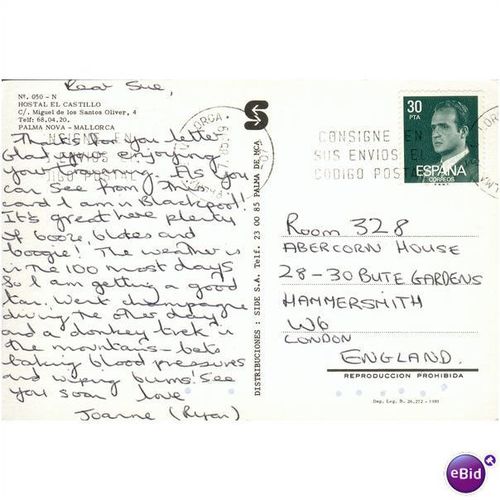 Dear Sue,
Nº. 050 - N
HOSTAL EL CASTILLO
C/. Miguel de los Santos Oliver, 4
Telf: 68.04.20.
PALMA NOVA - MALLORCA
Thanks for you letter
Glad you're enjoying
your nursing. As you
can see from this
card I am in Blackpool!
It's great here plenty
of booze, blokes and
boogie! The weather is
in the 100 most days
So I am getting a good
tan. Went champagne
diving the other day
and a donkey trek in
the mountains - bets
taking blood pressures
and wiping bums! See
you soon love
Joanne (Ryan)
DISTRIBUCIONES : SIDE S.A. Telf. 23 00 85 PALMA DE MCA
CONSIGNE EN
SUS ENVIOS EL
CODIGO POSTAL
30
PTA
ESPAÑA
CORREOS
Room 328
ABERCORN HOUSE
28-30 BUTE GARDENS
HAMMERSMITH
W6
LONDON
ENGLAND.
REPRODUCCION PROHIBIDA
eBid